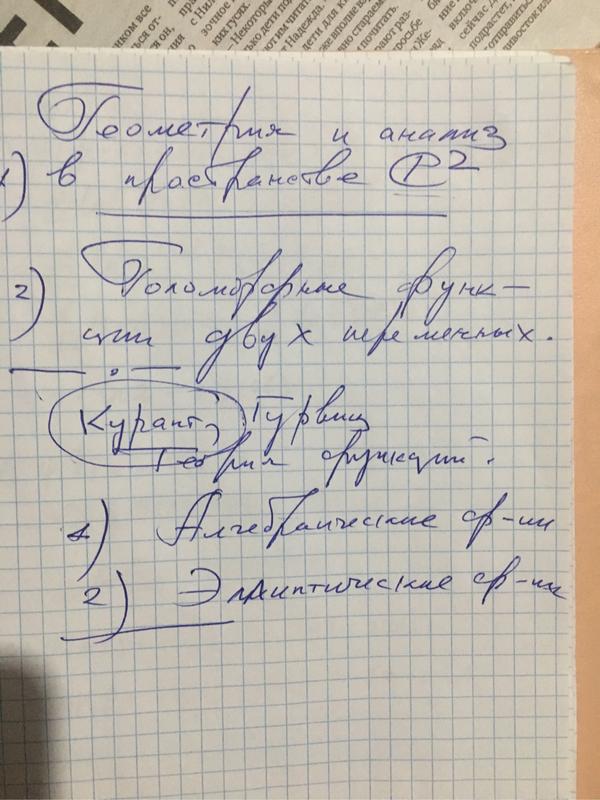 Геометрия и анализ
1) в пространстве ℂ²
2) Голоморфные функ-
ции двух переменных.
Курант, Гурвиц
Теория функций.
1) Алгебраические ф-ии
2) Эллиптические ф-ии